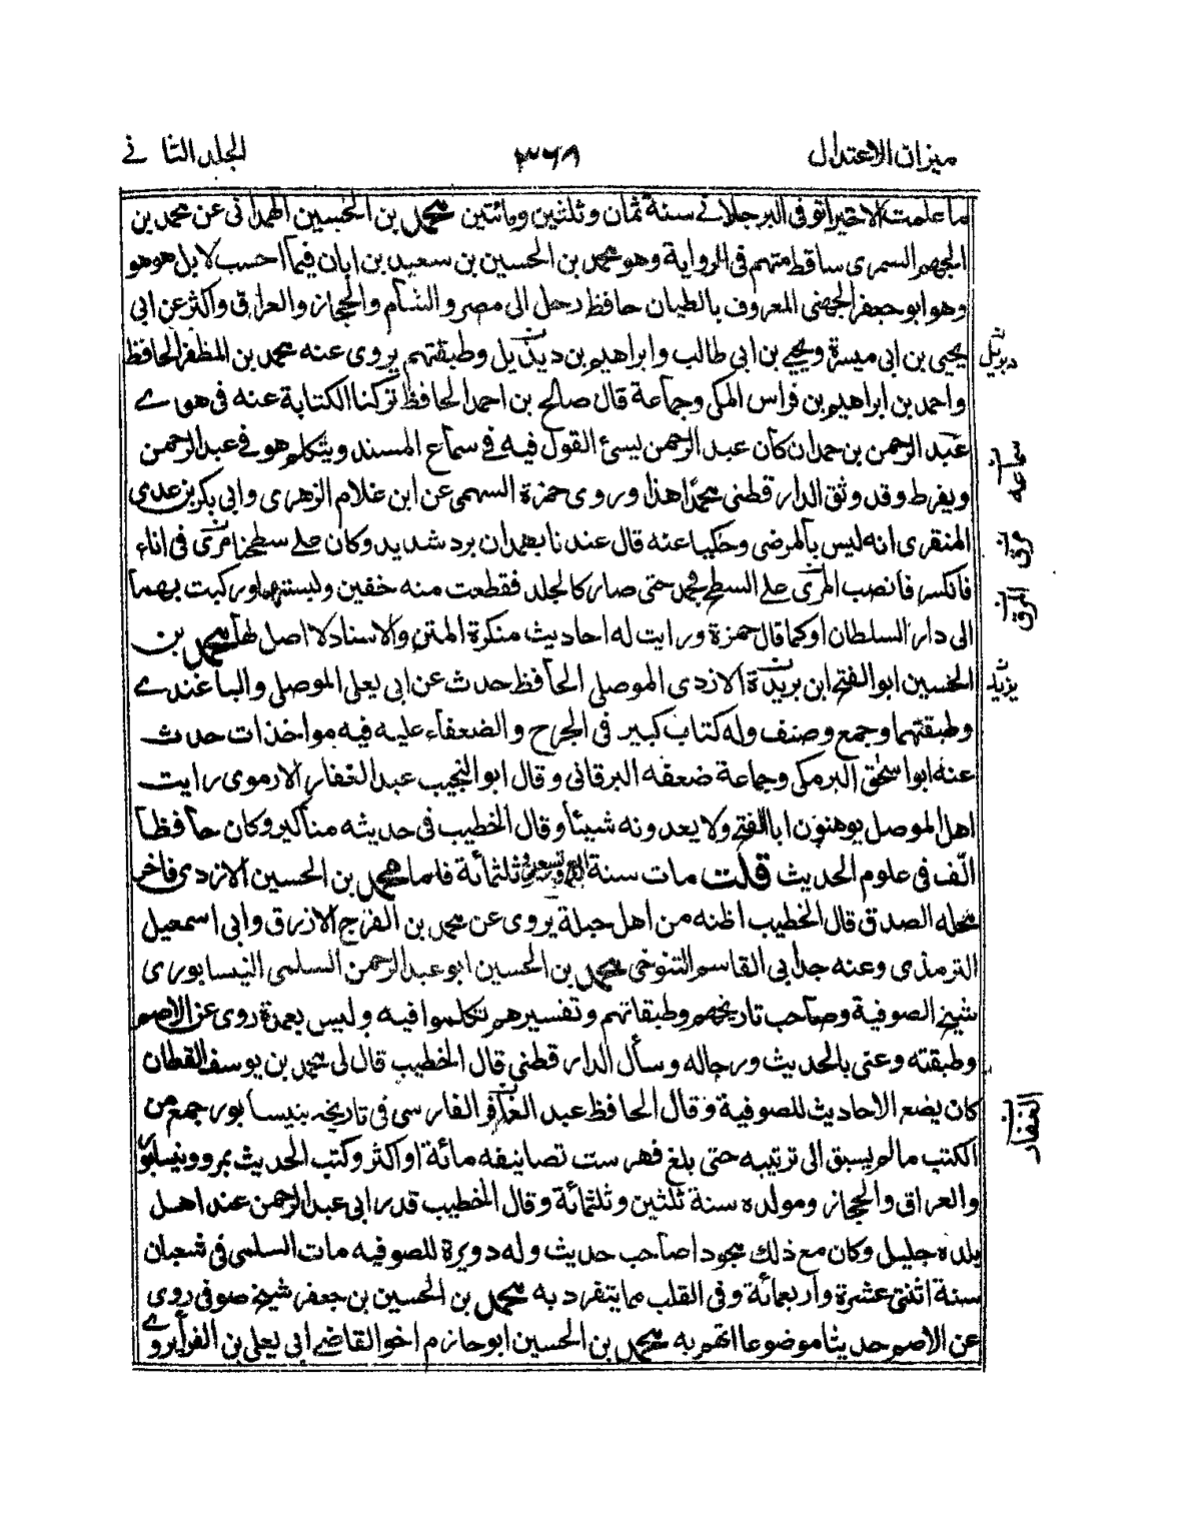 ميزان الاعتدال
٣٦٨
الجلد الثاني
ما علمت الا خيرا توفى البرجلانے سنة ثمان وثلثين ومائتين محمد بن الحسين الهمدانى عن محمد بن
الجهم السمرى ساقط متهم فى الرواية وهو محمد بن الحسين بن سعيد بن ابان فيما احسب لا بل هو هو
وهو ابو جعفر الجهنى المعروف بالطيان حافظ رحل الى مصر والشام والحجاز والعراق واكثر عن ابى
يحيى بن ابى ميسرة ويحيے بن ابى طالب وابراهيم بن ديزيل وطبقتهم يروى عنه محمد بن المظفر الحافظ
واحمد بن ابراهيم بن فراس المكى وجماعة قال صالح بن احمد الحافظ تركنا الكتابة عنه فى هوے
عبد الرحمن بن حمدان كان عبد الرحمن يسئ القول فيه فے سماع المسند ويتكلم هو فے عبد الرحمن
ويفرط وقد وثق الدارقطنى محمدا هذا وروى حمزة السهمى عن ابن غلام الزهرى وابى بكر بن عدى
المنقرى انه ليس بالمرضى وحكيا عنه قال عندنا بهمدان برد شديد وكان علے سطحنا مرى فى اناء
فانكسر فانصب المرى علے السطح فجمد حتى صار كالجلد فقطعت منه خفين ولبستهما وركبت بهما
الى دار السلطان او كما قال حمزة ورايت له احاديث منكرة المتن والاسناد لا اصل لها محمد بن
الحسين ابو الفتح ابن بريدة الازدى الموصلى الحافظ حدث عن ابى يعلى الموصلى والباغندے
وطبقتهما وجمع وصنف وله كتاب كبير فى الجرح والضعفاء عليه فيه مواخذات حدث
عنه ابو اسحق البرمكى وجماعة ضعفه البرقانى وقال ابو النجيب عبد الغفار الارموى رايت
اهل الموصل يوهنون ابا الفتح ولا يعدونه شيئا وقال الخطيب فى حديثه مناكير وكان حافظا
الف فى علوم الحديث قلت مات سنة اربع وسبعين وثلثمائة فاما محمد بن الحسين الازدى فاخر
محله الصدق قال الخطيب اظنه من اهل جبلة يروى عن محمد بن الفرج الازرق وابى اسمعيل
الترمذى وعنه جد ابى القاسم التنوخى محمد بن الحسين ابو عبد الرحمن السلمى النيسابورى
شيخ الصوفية وصاحب تاريخهم وطبقاتهم وتفسيرهم تكلموا فيه وليس بعمدة روى عن الاصم
وطبقته وعنى بالحديث ورجاله وسأل الدارقطنى قال الخطيب قال لى محمد بن يوسف القطان
كان يضع الاحاديث للصوفية وقال الحافظ عبد الغافر الفارسى فى تاريخه بنيسابور جمع من
الكتب ما لم يسبق الى ترتيبه حتى بلغ فهرست تصانيفه مائة او اكثر وكتب الحديث بمرو ونيسابور
والعراق والحجاز ومولده سنة ثلثين وثلثمائة وقال الخطيب قدر ابى عبد الرحمن عند اهل
بلده جليل وكان مع ذلك مجودا صاحب حديث وله دويرة للصوفيه مات السلمى فى شعبان
سنة اثنتى عشرة واربعمائة وفى القلب مما يتفرد به محمد بن الحسين بن جعفر شيخ صوفى روى
عن الاصم حديثا موضوعا اتهم به محمد بن الحسين ابو حازم اخو القاضے ابى يعلى بن الفرا يروے
ديزيل
سماعه
مرق
المرق
يزيد
الغفار